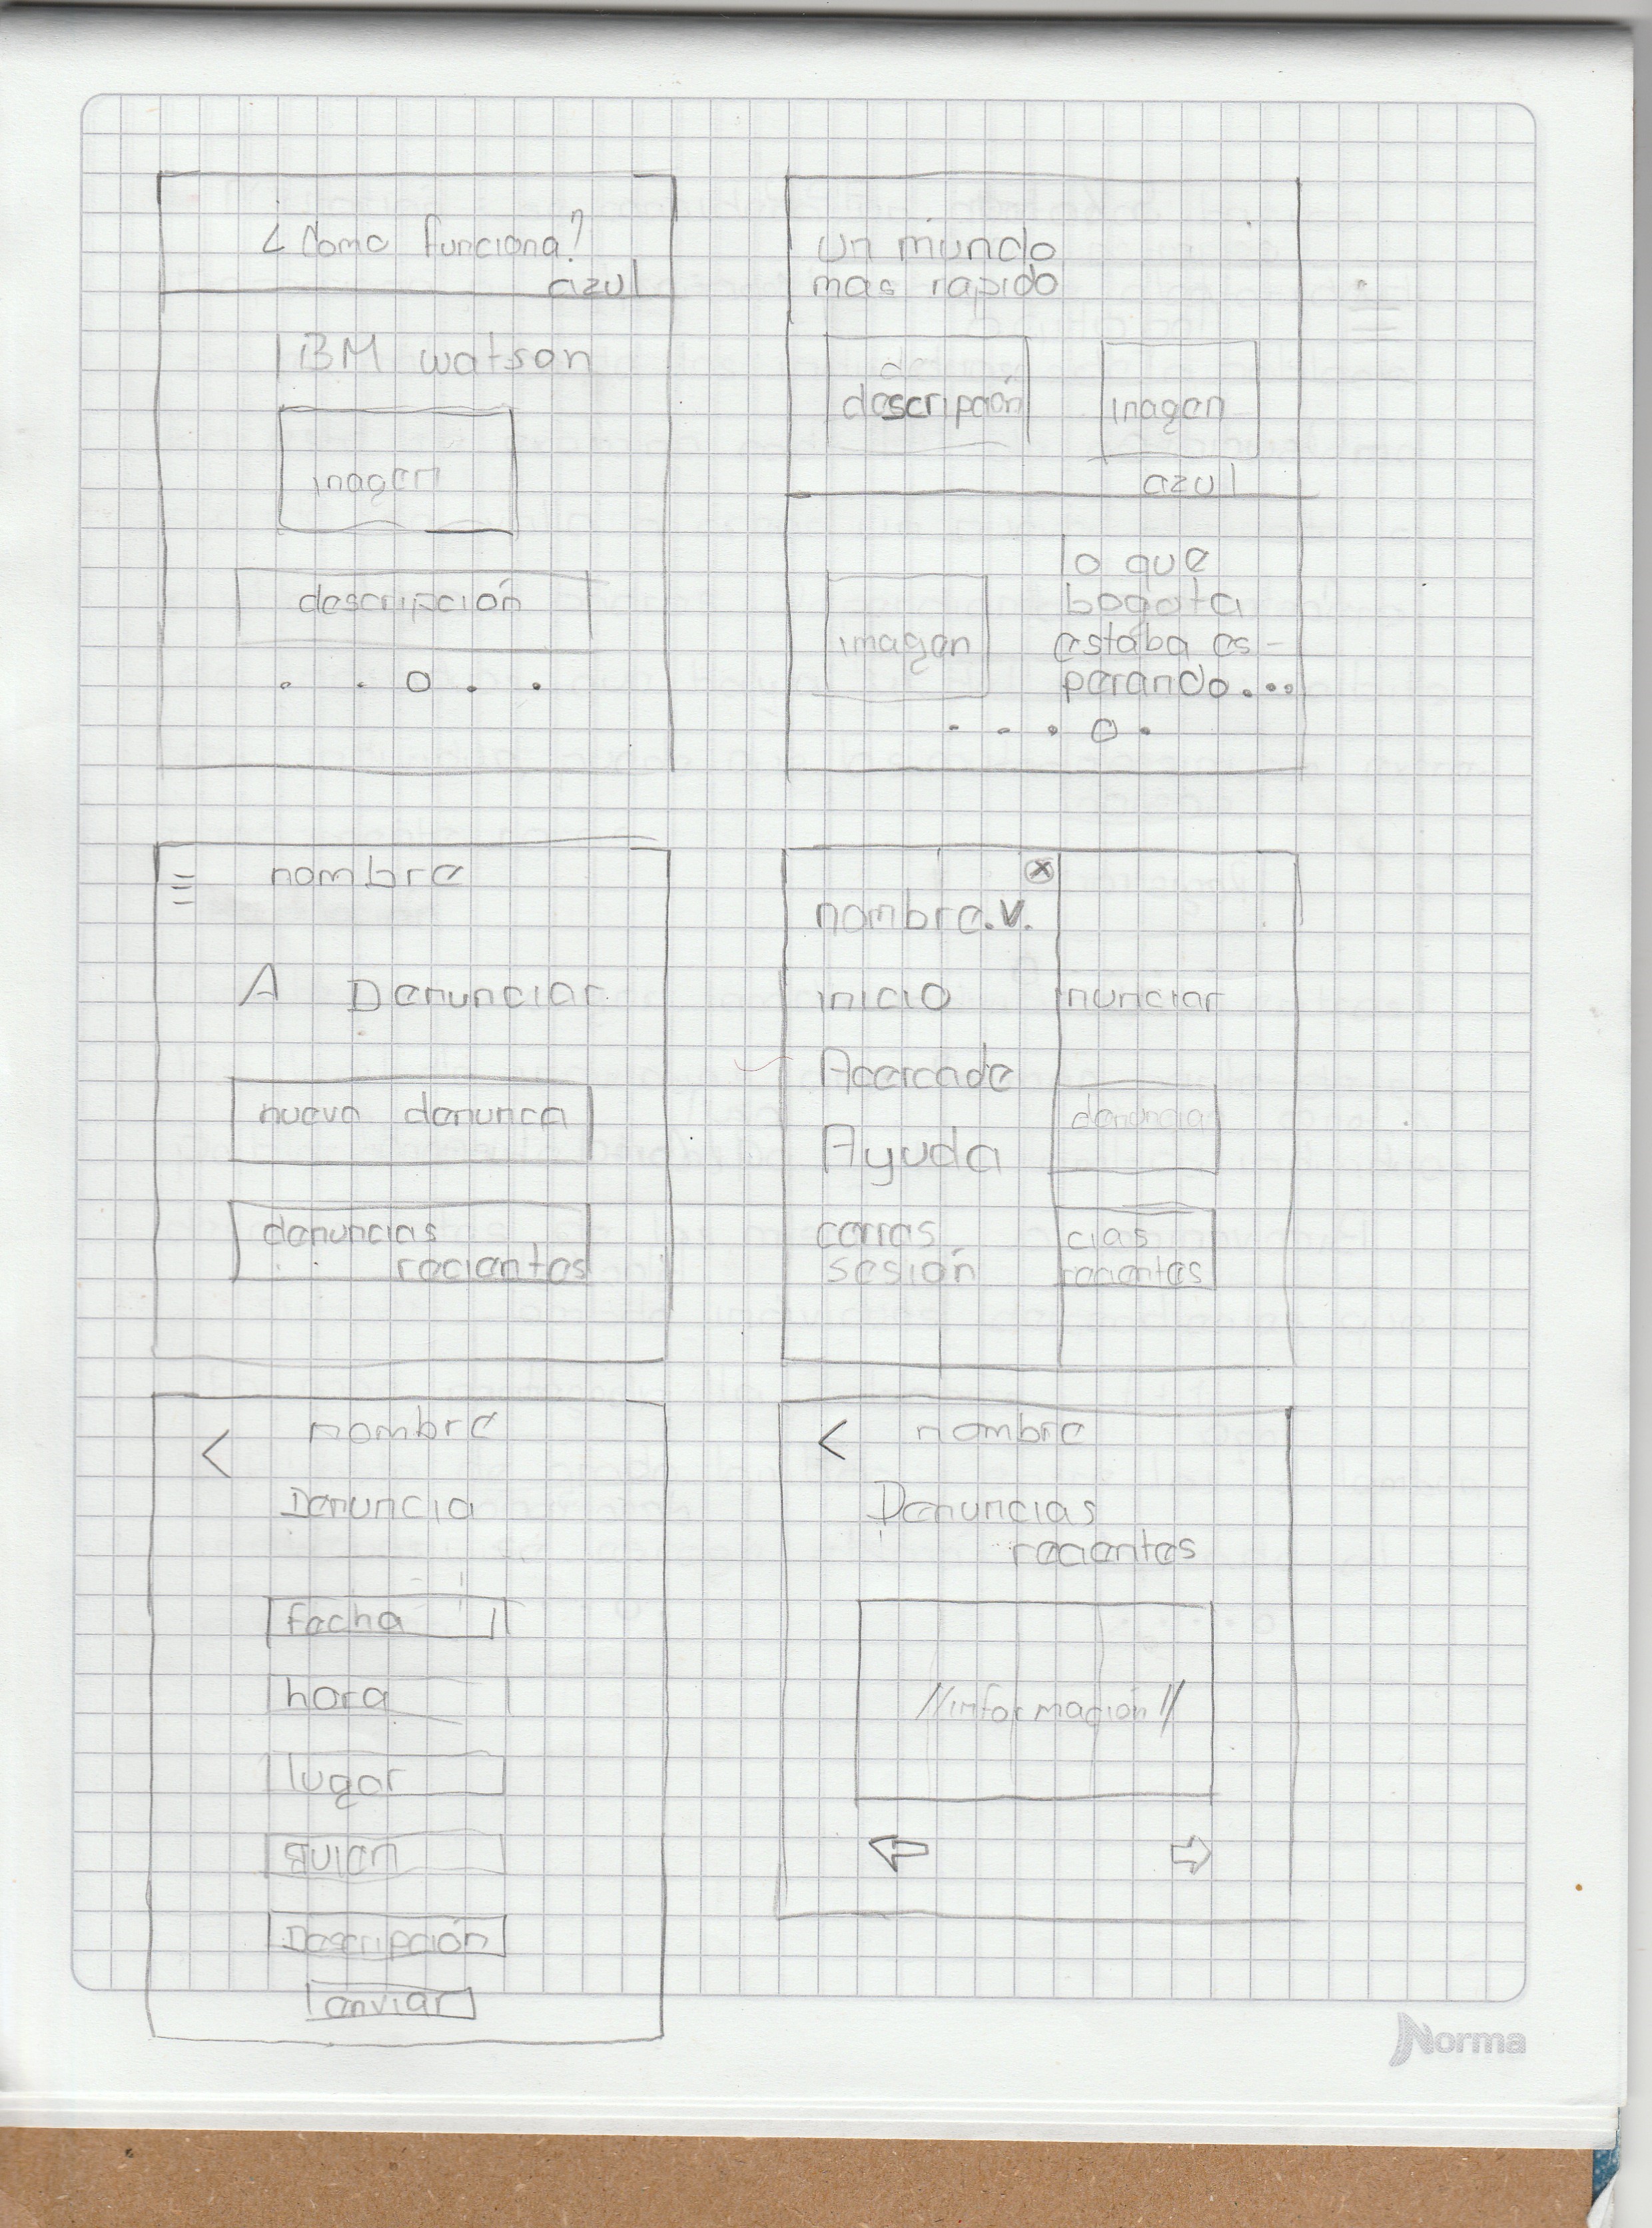 ¿Como funciona?
azul
IBM watson
inagen
descripción
un mundo
mas rapido
descripción
inagen
azul
imagen
lo que
bogota
estaba es-
perando...
nombre
A Denunciar
nueva denunca
denuncias
recientes
nombre.v.
inicio
nunciar
Acercade
denuncias
Ayuda
cerras
sesión
cias
recientes
nombre
Denuncia
fecha
hora
lugar
quien
Descripción
enviar
nombre
Denuncias
recientes
//información//
Norma